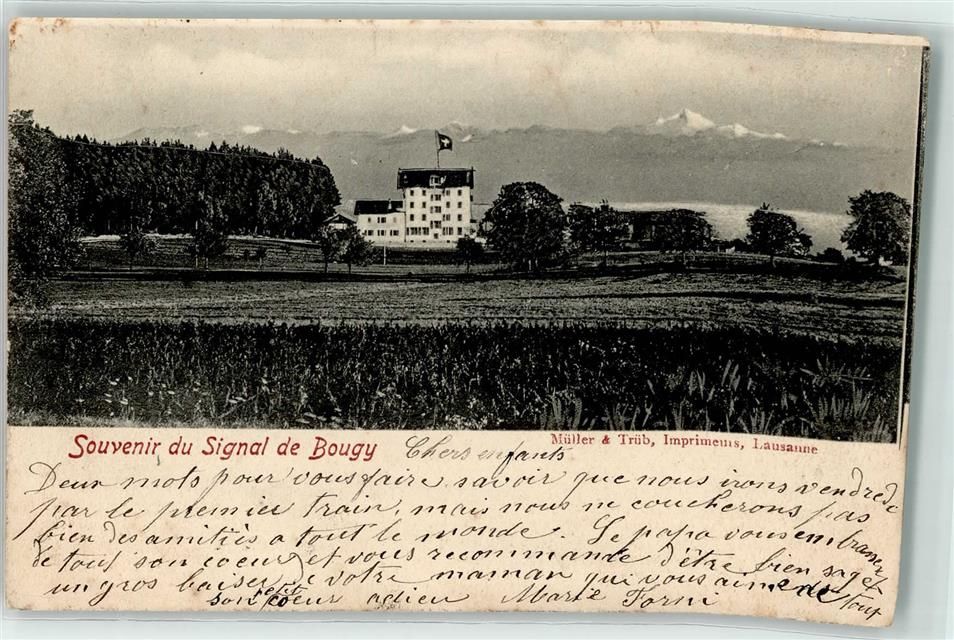 Souvenir du Signal de Bougy
Müller & Trüb, Imprimeurs, Lausanne
Chers enfants
Deux mots pour vous faire savoir que nous irons vendredi
par le premier train, mais nous ne coucherons pas
bien des amitiès a tout le monde. Le papa vous embrasse
de tout son coeur et vous recommande d'être bien sage et
un gros baiser de votre maman qui vous aime de tout
son petit coeur adieu Marie Forni